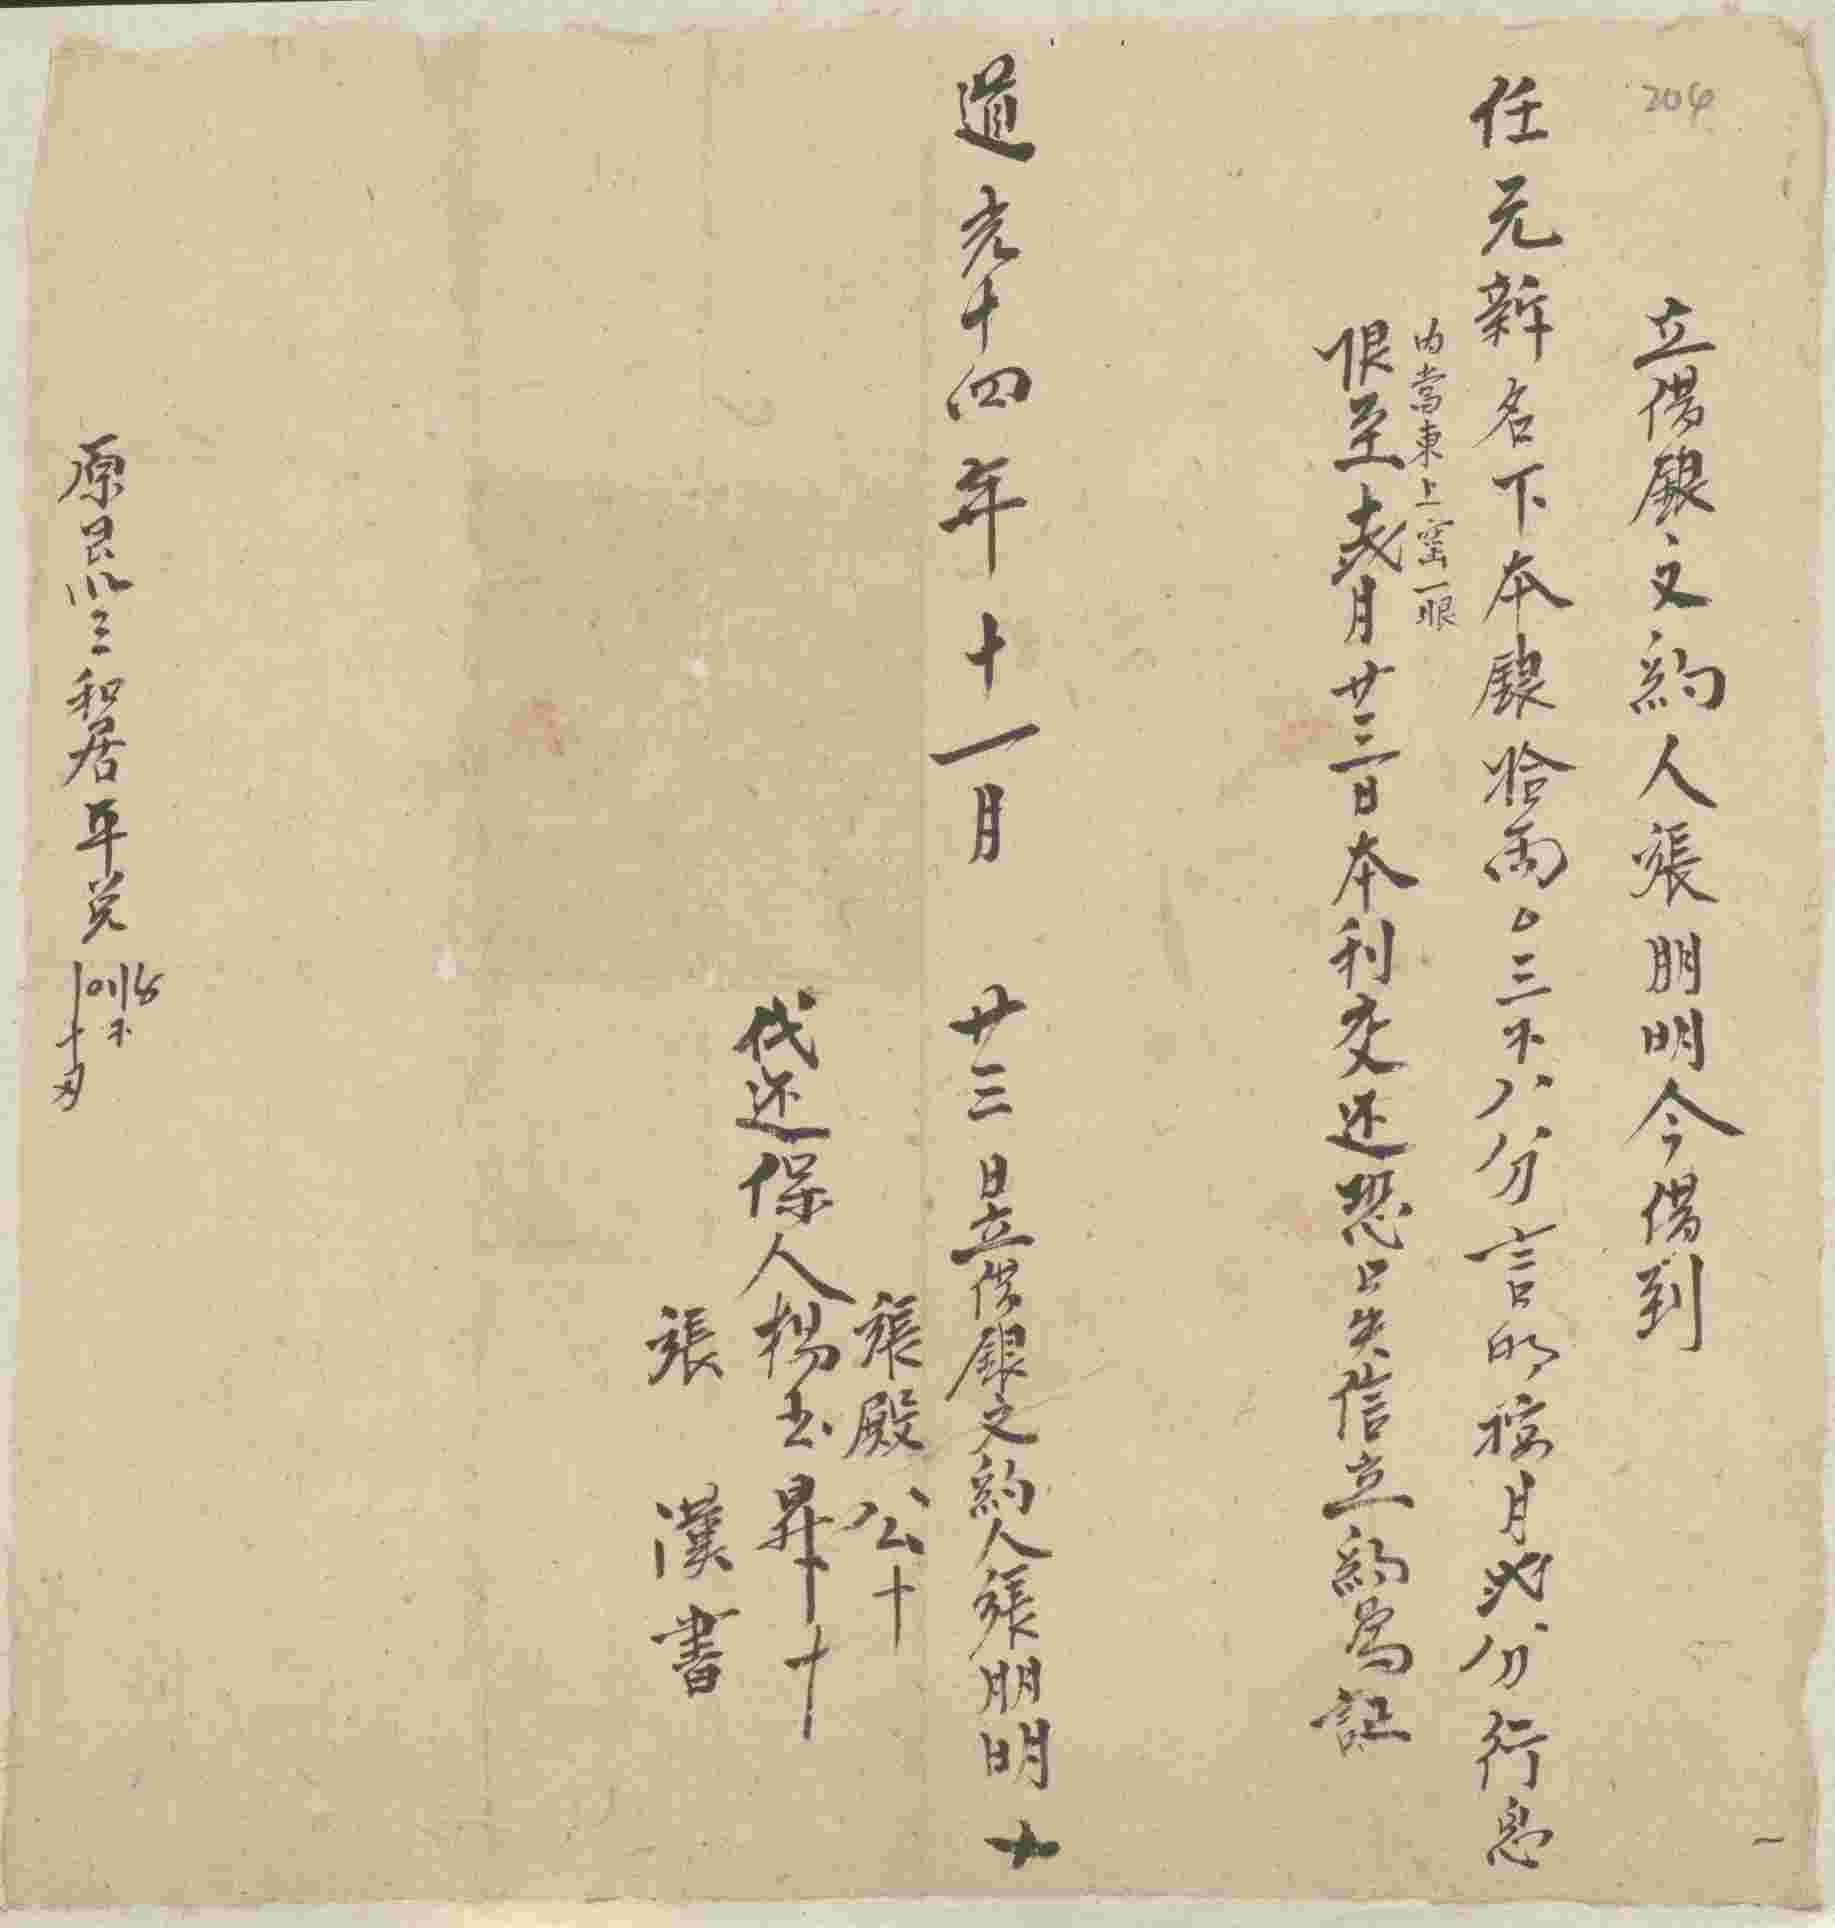 204
立借銀文約人張朋明今借到
任元新名下本銀拾兩〇三錢八分言明按月弍分行息
內當東上窑一眼
限至弍月廿三日本利交还恐口失信立約為証
道光十四年十一月 廿三日立借銀文約人張朋明十
張殿公十
代还保人楊玉昇十
張漢書
原艮以三和居平兌